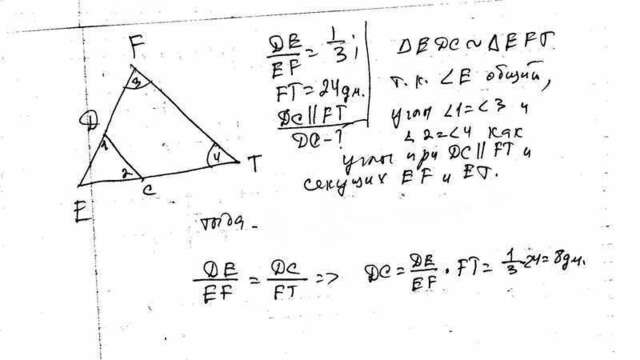 F
3
D
1
2
4
E
C
T
DE/EF = 1/3;
FT = 24дм.
DC || FT
DC - ?
ΔEDC ~ ΔEFT.
т.к. ∠E общий,
углы ∠1=∠3 и
∠2=∠4 как
углы при DC || FT и
секущих EF и ET.
тогда.
DE/EF = DC/FT => DC = DE/EF · FT = 1/3 · 24 = 8дм.